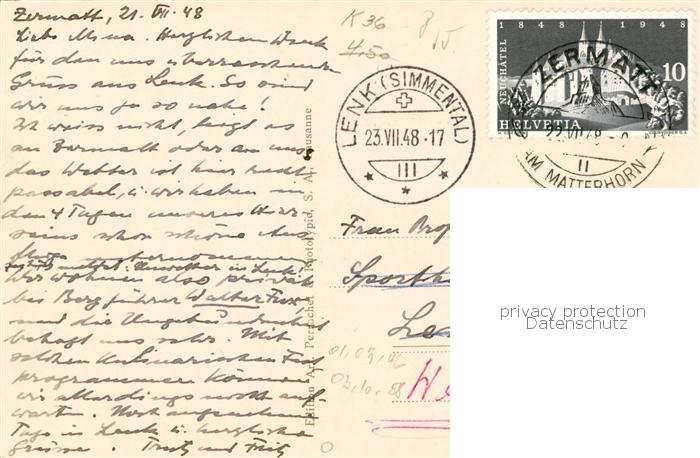 Zermatt, 21. VII. 48
Liebe Mina. Herzlichen Dank
für den uns überraschenden
Gruss aus Lenk. So sind
wir uns ja so nahe!
Ich weiss nicht, liegt es
an Zermatt oder an uns
das Wetter ist hier recht
passabel, u. wir haben in
den 4 Tagen unseres Hier
seins schon schöne Aus
flüge unternommen
Unwetter in Lenk
Wir wohnen also privat
bei Bergführer Walter
und die Ungebundenheit
behagt uns sehr. Mit
solchen Kulinarischen Fest
programmen können
wir allerdings nicht auf
warten. Noch angenehme
Tage in Lenk u. herzliche
Grüsse. Trudy und Fritz
K 36
450
Edition Art. Perrochet Phototypid, S. A. Lausanne
LENK (SIMMENTAL)
23.VII.48-17
III
1848 1948
NEUCHÂTEL
10
HELVETIA
ZERMATT
23.VII.48
II
AM MATTERHORN
Frau
Sport
Le
01.09.
03.10. 58
We
privacy protection
Datenschutz